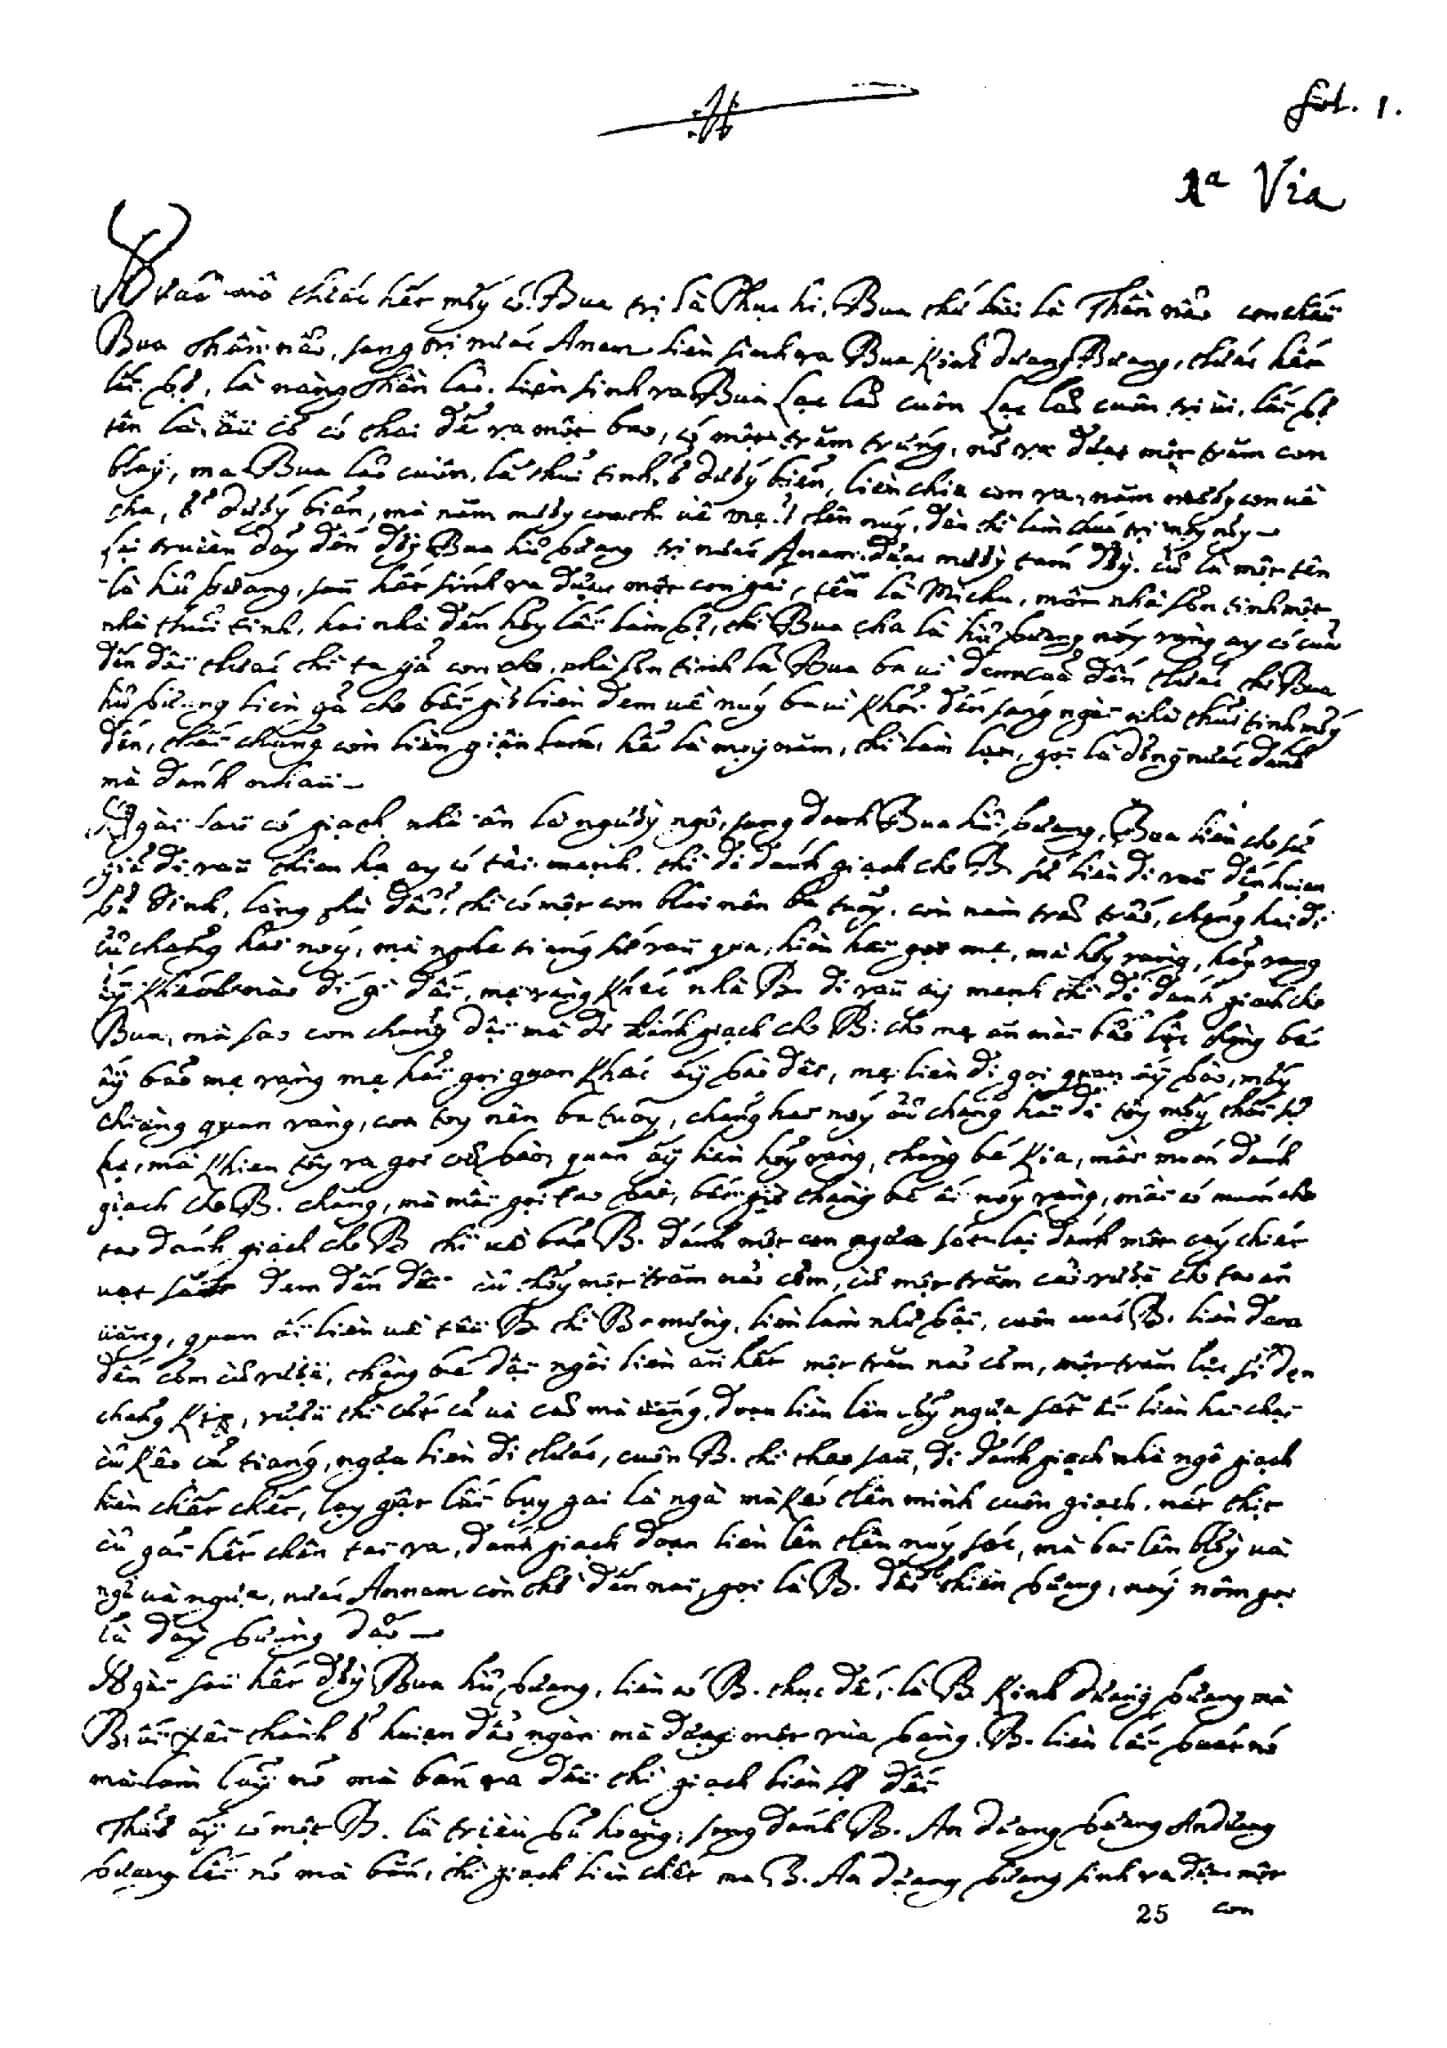 fol. 1.
1ª Via
Nước Ngô trước hết mớy có Bua trị là Phục hi, Bua thứ hai là Thần nấŏ con cháu
Bua Thần nấŏ, sang trị nước Anam liền sinh ra Bua Kinh dương Bương, trước hết
lấy ꞗợ, là nàng Thần laŏ. liền sinh ra Bua Lạc laŏ cuôn Lạc laŏ cuôn trị ùì, lấy ꞗợ
tên là Âu cơ có thai đẻ ra một bao, có một trăm trứng, nở ra được một trăm con
blay, ma Bua laŏ cuôn, là thuỉ tinh, ở dưới biển, liền chia con ra, năm mươi con về
cha, ở dưới biển, mà năm mươi con thì về mẹ ở tlên núy, đến thì làm chúa trị mọy nơy
Lại truièn đây đến đời Bua hủ ꞗương trị nước Anam. được mười tám đời. cũ là một tên
là hủ ꞗương, sau hết sinh ra được một con gái, tên là Mị chu, một nhà sơn tinh một
nhà thuỉ tinh, hai nhà đến hỏy lấy làm ꞗợ, thì Bua cha là hủ ꞗương nóy rạng ay có của
đến đây trước thì ta gả con cho, nhà sơn tinh là Bua ba ui đem của đến trước thì Bua
hủ ꞗương liền gả cho bấy giờ liền đem về núy ba ui khỏi đến sáng ngài nhà thuỉ tinh mớy
đến, thấy chẳng còn liền giận lắm, hễ là mọy năm, thì làm lụt, gọi là dơng nước đánh
mà đánh nhau
Ngài sau có giạch nhà ân là người ngô, sang đánh Bua hủ ꞗương, Bua liền cho sứ
giả đi rau thien hạ ay có tài mạnh. thì đi đánh giạch cho B. sứ liền đi rau đến huien
ꞗũ ninh, làng phù đấu, thì có một con blai nên ba tuổy, còn nàm trấŏ trấŏ, chẳng hai đi
cũ chẳng hai nóy, mà nghe tiáng sứ rau qua, liền hai gọi mẹ, mà hỏy ràng, hỏy rang
ấy khách nào đí gì đấy, mẹ ràng khác nhà B. đi rau ay mạnh thì đi đánh giạch cho
Bua, mà sao con chảng dậy mà đi đánh giạch cho B. cho mẹ ăn mài bấŏ lộc chàng bé
ấy bảŏ mẹ ràng mẹ hẩy gọi quan khác ấy ꞗào đây, mẹ liền đi gọi quan ấy ꞗào, mớy
thiàng quan ràng, con toy nên ba tuổy, chảng hai nóy cũ chảng hai đi tôy mớy thấy sự
lạ, mà khien tôy ra gọi oũ ꞗào, quan ấy liền hỏy ràng, chàng bé kia, mầi muốn đánh
giạch cho B. chăng, mà mầi gọi tao ꞗào, bấy giờ chàng bé ấy nóy ràng, mầi có muốn cho
tao đánh giạch cho B. thì ꞗề bảŏ B. đánh một con ngựa sắt lại đánh một cái thiét
uọt sắt đem đến đây cũ thỏy một trăm nòi cơm, cũ một trăm cảŏ rượu cho tao ăn
uấng, quan ấy liền về tâu B. thì B. mừng, liền làm như ꞗậi, cuôn cuấ B. liền đem
đến cơm cũ rượu, chàng bé dậi ngồi liền ăn hết một trăm nòi cơm, một trăm lực sĩ dọn
chảng kịp, rượu thì cất cả và cảŏ mà uấng, đoạn liền lên cởy ngựa sắt ấy liền hai chai
cũ kêo cả tiáng, ngựa liền đi trước, cuôn B. thì theo sau, đi đánh giạch nhà ngô giạch
liền chết hết, lạy gặt lấy bụy gai là ngà mà kéo tlên mình cuôn giạch. nát thịt
cũ gãy hết chân tai ra, đánh giạch đoạn liền lên tlên núy sóc, mà bai lên blời và
người và ngựa, nước Annam còn thờ đến nai, gọi là B. đấŏ thiên ꞗương, nóy nôm gọi
là đấy ꞗương dấŏ
Ngài sau hết đời Bua hủ ꞗương, liền có B. thục đế, là B. Kinh dương ꞗương mà
B. ấy xâi thành ở huiẹn đấŏ ngàn mà được một rùa ꞗàng, B. liền lấy ꞗuốt nó
mà làm lảỹ nỏ mà bán ra đâu thì giạch liền sợ đấy
Thuở ấy có một B. là triệu ꞗũ hoàng, sang đánh B. An dương ꞗương An dương
ꞗương lấy nỏ mà bắn, thì giạch liền chết mà B. An dương ꞗương sinh ra được một
25 con